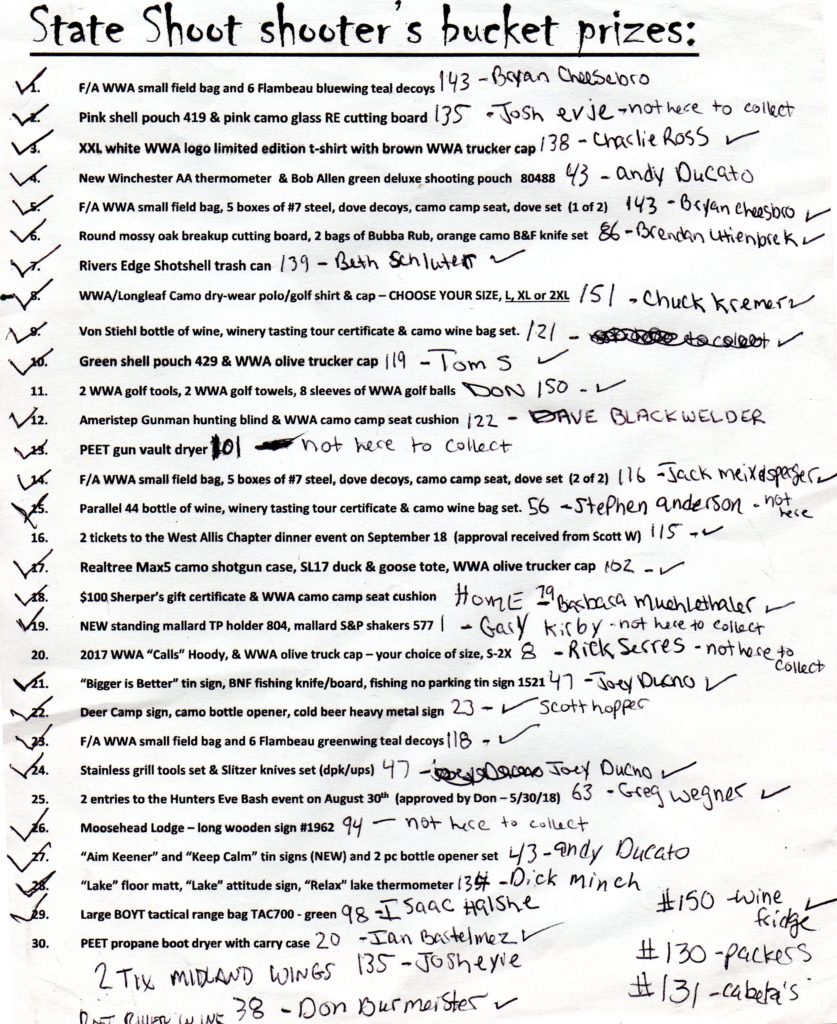 State Shoot shooter's bucket prizes:
✓ 1. F/A WWA small field bag and 6 Flambeau bluewing teal decoys 143 - Bryan Cheesebro
✓ 2. Pink shell pouch 419 & pink camo glass RE cutting board 135 - Josh evje - not here to collect
✓ 3. XXL white WWA logo limited edition t-shirt with brown WWA trucker cap 138 - Charlie Ross ✓
✓ 4. New Winchester AA thermometer & Bob Allen green deluxe shooting pouch 80488 43 - andy Ducato
✓ 5. F/A WWA small field bag, 5 boxes of #7 steel, dove decoys, camo camp seat, dove set (1 of 2) 143 - Bryan cheesbro ✓
✓ 6. Round mossy oak breakup cutting board, 2 bags of Bubba Rub, orange camo B&F knife set 86 - Brendan ✓
✓ 7. Rivers Edge Shotshell trash can 139 - Beth Schluter ✓
✓ 8. WWA/Longleaf Camo dry-wear polo/golf shirt & cap – CHOOSE YOUR SIZE, L, XL or 2XL 151 - Chuck Kremer ✓
✓ 9. Von Stiehl bottle of wine, winery tasting tour certificate & camo wine bag set. 121 - to collect ✓
✓ 10. Green shell pouch 429 & WWA olive trucker cap 119 - Tom S ✓
11. 2 WWA golf tools, 2 WWA golf towels, 8 sleeves of WWA golf balls DON 150 - ✓
✓ 12. Ameristep Gunman hunting blind & WWA camo camp seat cushion 122 - DAVE BLACKWELDER
✓ 13. PEET gun vault dryer 101 not here to collect
✓ 14. F/A WWA small field bag, 5 boxes of #7 steel, dove decoys, camo camp seat, dove set (2 of 2) 116 - Jack ✓
✓ 15. Parallel 44 bottle of wine, winery tasting tour certificate & camo wine bag set. 56 - Stephen anderson - not here
16. 2 tickets to the West Allis Chapter dinner event on September 18 (approval received from Scott W) 115 - ✓
✓ 17. Realtree Max5 camo shotgun case, SL17 duck & goose tote, WWA olive trucker cap 102 - ✓
✓ 18. $100 Sherper's gift certificate & WWA camo camp seat cushion HOME 79 Barbara Muehlethaler ✓
✓ 19. NEW standing mallard TP holder 804, mallard S&P shakers 577 1 - Gary Kirby - not here to collect
20. 2017 WWA "Calls" Hoody, & WWA olive truck cap – your choice of size, S-2X 8 - Rick Serres - not here to collect
✓ 21. "Bigger is Better" tin sign, BNF fishing knife/board, fishing no parking tin sign 1521 47 - Joey Ducno ✓
✓ 22. Deer Camp sign, camo bottle opener, cold beer heavy metal sign 23 - ✓ Scott hopper
✓ 23. F/A WWA small field bag and 6 Flambeau greenwing teal decoys 118 - ✓
✓ 24. Stainless grill tools set & Slitzer knives set (dpk/ups) 47 - Joey Ducno ✓
25. 2 entries to the Hunters Eve Bash event on August 30th (approved by Don – 5/30/18) 63 - Greg wegner ✓
✓ 26. Moosehead Lodge – long wooden sign #1962 94 - not here to collect
✓ 27. "Aim Keener" and "Keep Calm" tin signs (NEW) and 2 pc bottle opener set 43 - andy Ducato
✓ 28. "Lake" floor matt, "Lake" attitude sign, "Relax" lake thermometer - Dick minch
✓ 29. Large BOYT tactical range bag TAC700 - green 98 - Isaac Halshe
30. PEET propane boot dryer with carry case 20 - Ian Bastelmez ✓
#150 - wine fridge ✓
#130 - packers
#131 - cabela's
2 TIX MIDLAND WINGS 135 - Josh evje
RIVER WINE 38 - Don Burmeister ✓